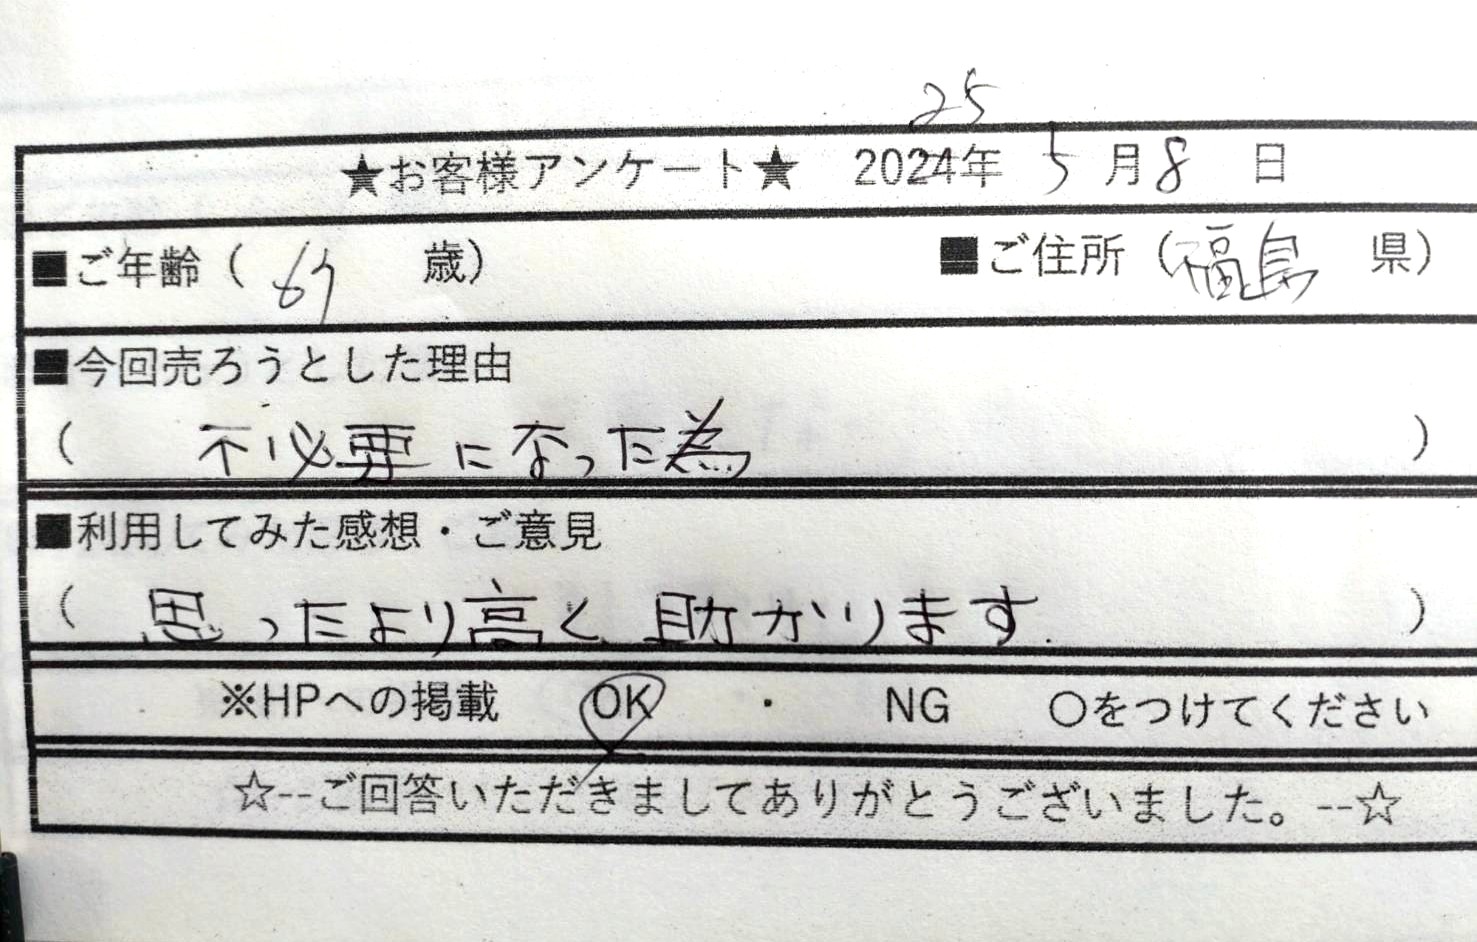 25
★お客様アンケート★ 2024年 5月8日
■ご年齢（ 69 歳） ■ご住所（福島 県）
■今回売ろうとした理由
（ 不必要になった為 ）
■利用してみた感想・ご意見
（ 思ったより高く助かります. ）
※HPへの掲載 OK ・ NG ○をつけてください
☆--ご回答いただきましてありがとうございました。--☆